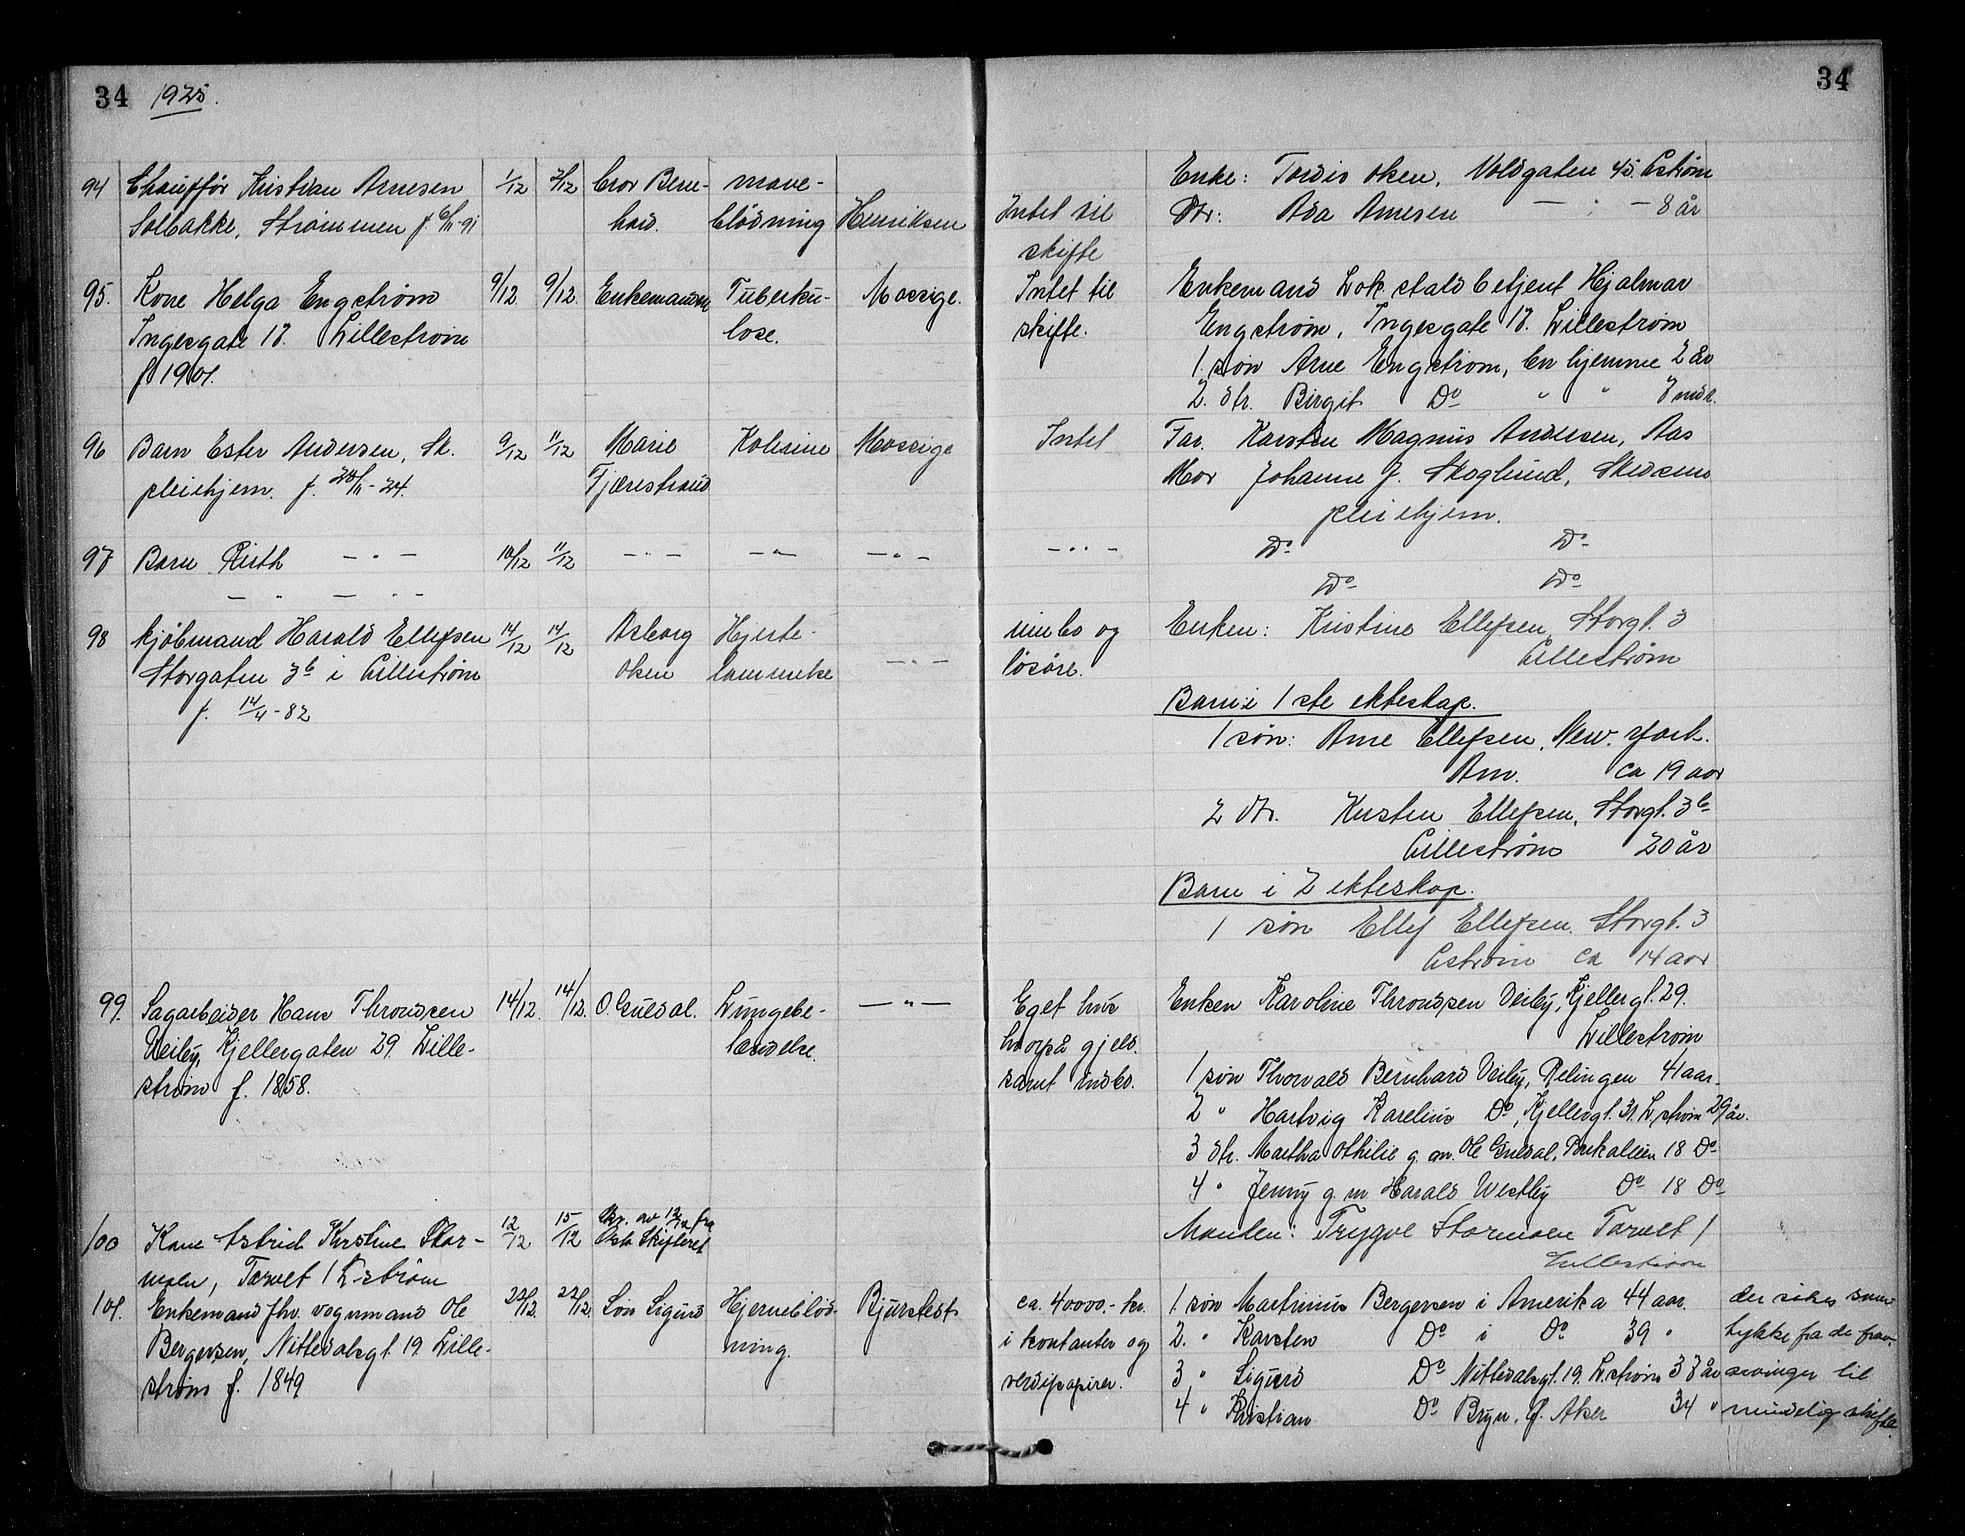 34 1925.
34
94 Chauffør Kristian Arnesen 1/12 2/12 bror Bern- mave-
Solbakke, Strømmen f 6/11-91 hard. blødning Henriksen
Intet til
skifte
Enke: Tordis Olsen, Voldgaten 45. Lstrøm
Dtr: Asa Arnesen — " — 8 år
95. Kone Helga Engstrøm 9/12 9/12. Enkemannen Tuberku- Mossige.
Ingesgate 17. Lillestrøm lose.
f 1901.
Intet til
skifte.
Enkemand Lok. stald betjent Hjalmar
Engstrøm, Ingesgate 17. Lillestrøm
1. søn Arne Engstrøm, bor hjemme 2 år
2. dtr. Birgit Do " " 7 mdr.
96 Barn Ester Andersen, Sk. 9/12 11/12 Marie Kolerine Mossige
pleiehjem. f. 28/11-24. Fjærestrand
Intet
Far. Karsten Magnus Andersen, Aas
Mor Johanne J. Skoglund, Skedsmo
pleiehjem.
97 Barn Ruth — " — 10/12 11/12 — " — — " — — " —
— " — — " —
— " —
Do Do
Do Do
98 Kjøbmand Harald Ellefsen 14/12 14/12 Aslaug Hjerte-
Storgaten 3b i Lillestrøm Olsen lammelse — " —
f. 14/4-82
innbo og
løsøre.
Enken: Kristine Ellefsen, Storgt. 3
Lillestrøm
Barn i 1ste ekteskap.
1 søn: Arne Ellefsen, New. York.
Am. ca 19 aar
2 dtr. Kirsten Ellefsen, Storgt. 3b
Lillestrøm 20 år
Barn i 2 ekteskap.
1 søn Ellef Ellefsen. Storgt. 3
Lstrøm ca 14 aar
99. Sagarbeider Hans Throndsen 14/12. 14/12. O. Guldal. Lungebe- — " —
Veiby, Kjellergaten 29 Lille- tændelse.
strøm f. 1858.
Eget hus
hvorpå gjeld.
samt indbo.
Enken Karoline Throndsen Veiby, Kjellergt. 29.
Lillestrøm
1 søn Thorvald Bernhard Veiby, Relingen 41 aar.
2 " Hartvig Karelius Do, Kjellergt. 31. L.strøm 29 år.
3 dtr. Martha Othilie g. m. Ole Guldal, Parkalleen 18 Do
4 " Jenny g. m. Harald Westby Do 18 Do
100 Kone Astrid Kristine Stor- 12/12 15/12 Skr. av 12/12 fra
moen, Torvet 1 L-strøm Oslo Skifteret
Manden: Trygve Stormoen Torvet 1
Lillestrøm
101. Enkemand fhv. vognmand Ole 22/12. 22/12. Søn Sigurd Hjerneblød- Bjurstedt
Bergersen, Nittedalsgt. 19. Lille- ning.
strøm f. 1849
ca. 40000.- kr.
i kontanter og
verdipapirer.
1. søn Martinius Bergersen i Amerika 44 aar.
2. " Karsten Do i Do 39 "
3 " Sigurd Do Nittedalsgt. 19. L.strøm 37 år
4 " Kristian Do Bryn, Ø. Aker 34 "
der søkes sam
tykke fra de frav.
arvinger til
mindelig skifte.